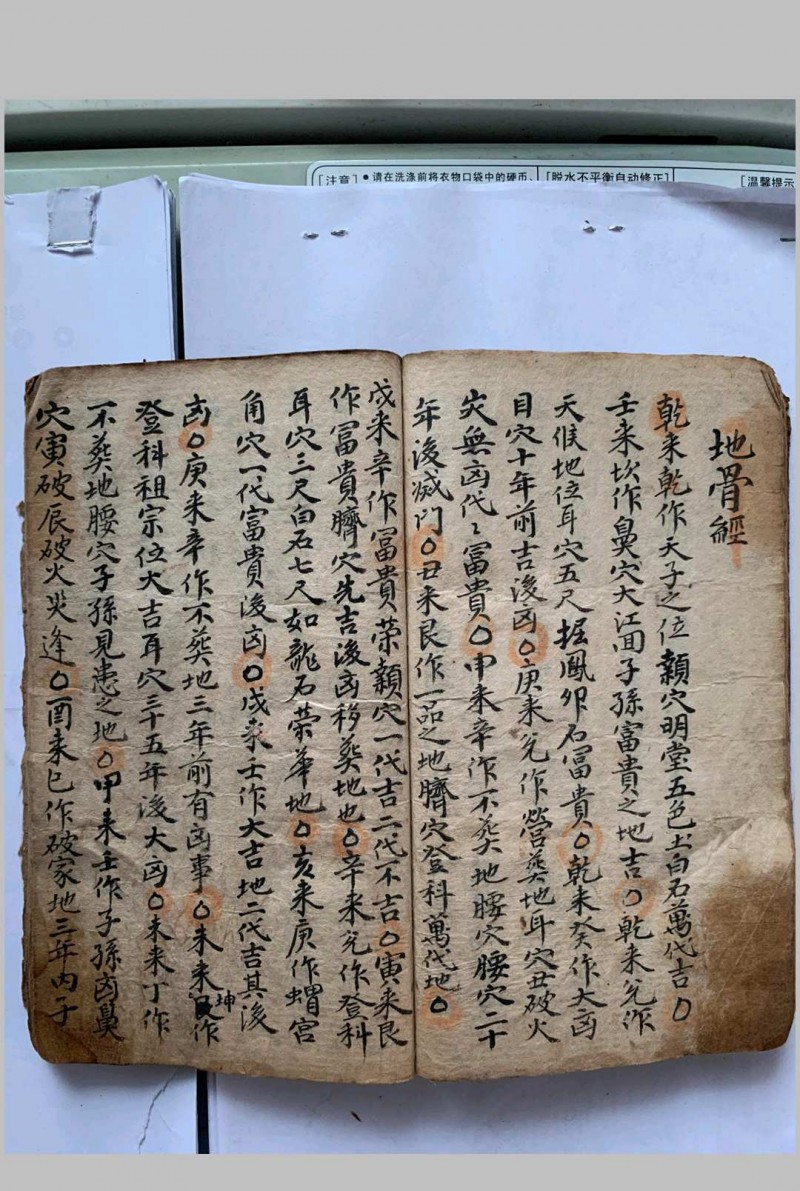 [注意] ●请在洗涤前将衣物口袋中的硬币、
[脱水不平衡自动修正]
[温馨提示
地骨經
乾来乾作天子之位顙穴明堂五色土白石萬代吉〇
壬来坎作鼻穴大江回子孫富貴之地吉〇乾来兊作
天候地位耳穴五尺掘鳳卵石冨貴〇乾来癸作大凶
目穴十年前吉後凶〇庚来兊作營葬地耳穴丑破火
灾無凶代〻冨貴〇申来辛作不葬地腰穴腰穴二十
年後滅門〇丑来艮作一品之地臍穴登科萬代地〇
戌来辛作冨貴荣顙穴一代吉二代不吉〇寅来艮
作冨貴臍穴先吉後凶移葬地也〇辛来兊作登科
耳穴三尺白石七尺如龍石荣華地〇亥来庚作蝐宫
角穴一代富貴後凶〇戌来壬作大吉地二代吉其後
凶〇庚来辛作不葬地三年前有凶事〇未来坤作
登科祖宗位大吉耳穴三十五年後大凶〇未来丁作
不葬地腰穴子孫見患之地〇甲来壬作子孫凶鼻
穴寅破辰破火災逢〇酉来巳作破家地三年内子